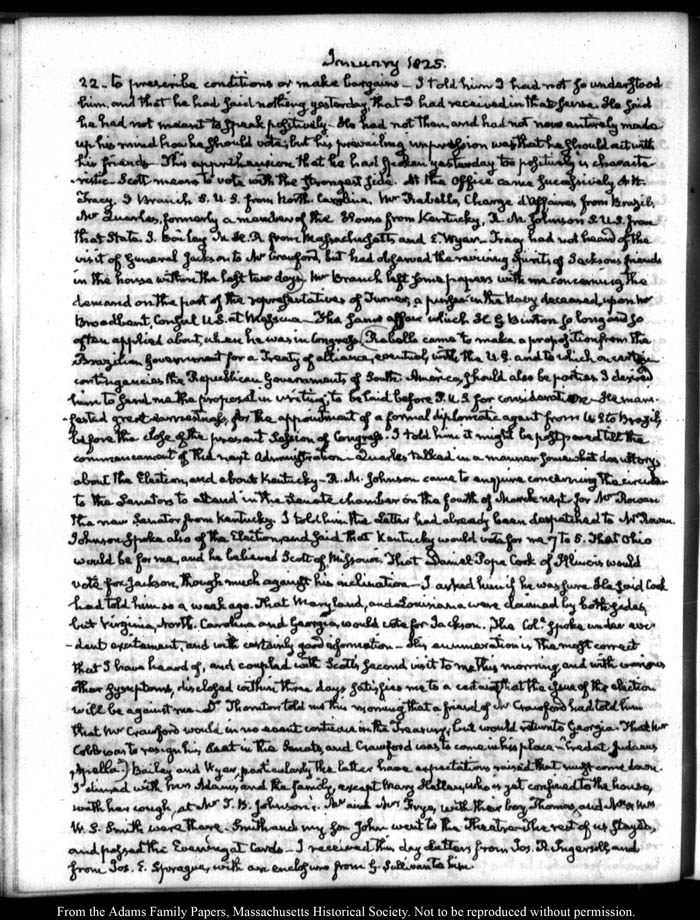 January 1825.
22 - to prescribe conditions or make bargains - I told him I had not so understood
him, and that he had said nothing yesterday, that I had received in that sense. He said
he had not meant to speak positively - He had not then, and had not now entirely made
up his mind how he should vote; but his prevailing impression was that he should act with
his friends - This apprehension that he had spoken yesterday too positively is characte
-ristic. Scott means to vote with the strongest side. At the Office came successively A. H.
Tracy, J Branch S. U. S. from North Carolina, Mr Rabello, Chargé d'Affaires from Brazil,
Mr Quarles, formerly a member of the House from Kentucky, R. M. Johnson S. U. S. from
that State J. Bailey M. H. R from Massachusetts and E. Wyer - Tracy had not heard of the
visit of General Jackson to Mr Crawford, but had observed the reviving spirits of Jackson's friends
in the house within the last two days. Mr Branch left some papers with me concerning the
demand on the part of the representatives of Turner, a purser in the Navy deceased, upon Mr
Broadbent, Consul U.S. at Messina - The same affair which H G Burton so long and so
often applied about, when he was in Congress. Rabello came to make a proposition from the
Brazilian Government for a Treaty of alliance, eventual, with the U.S. and to which on certain
contingencies the Republican Governments of South America should also be parties I desired
him to send me the proposal in writing, to be laid before P. U. S for consideration - He mani
-fested great earnestness, for the appointment of a formal diplomatic agent from U.S to Brazil,
before the close of the present Session of Congress. I told him it might be postponed till the
commencement of the next Administration - Quarles talked in a manner somewhat desultory
about the Election, and about Kentucky - R. M. Johnson came to enquire concerning the circular
to the Senators to attend in the Senate chamber on the fourth of March next, for Mr Rowan
the new Senator from Kentucky. I told him the Letter had already been despatched to Mr Rowan
Johnson spoke also of the Election, and said that Kentucky would vote for me 7 to 5. That Ohio
would be for me, and he believed Scott of Missouri. That Daniel Pope Cook of Illinois would
vote for Jackson, though much against his inclination - I asked him if he was sure. He said Cook
had told him so a week ago. That Maryland, and Louisiana were claimed by both sides,
but Virginia, North Carolina and Georgia, would vote for Jackson. The Col. spoke under evi
-dent excitement, and with certainly good information - His enumeration is the most correct
that I have heard of, and coupled with Scott's second visit to me this morning and with various
other symptoms, disclosed within three days satisfies me to a certainty that the issue of the election
will be against me. Dr Thornton told me this morning that a friend of Mr Crawford had told him
that Mr Crawford would in no event continue in the Treasury, but would return to Georgia. That Mr
Cobb was to resign his seat in the Senate, and Crawford was to come in his place - (credat Judaeus
Apella.) Bailey and Wyer, particularly the latter have expectations raised that must come down.
I dined with Mrs Adams, and the family, except Mary Hellen, who is yet confined to the house,
with her cough, at Mr T. B. Johnson's. Mr and Mrs Frye, with their boy Thomas, and Mr & Mrs
W. S. Smith were there. Smith and my Son John went to the Theatre. The rest of us stayed,
and passed the Evening at Cards - I received this day Letters from Jos. R. Ingersoll, and
from Jos. E. Sprague, with an enclosure from G. Sullivan to him.
From the Adams Family Papers, Massachusetts Historical Society. Not to be reproduced without permission.